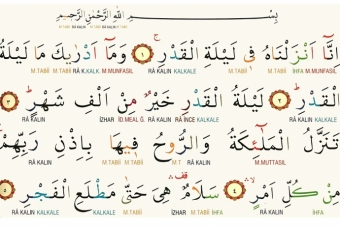 بِسْمِ اللّٰهِ الرَّحْمٰنِ الرَّحِيمِ
اِنَّٓا اَنْزَلْنَاهُ فِي لَيْلَةِ الْقَدْرِ ١ وَمَٓا اَدْرٰيكَ مَا لَيْلَةُ
M.TABİİ RÂ K.KALKALE M.MUNFASIL RÂ KALIN KALKALE M.TABİİ M.TABİİ İHFA M.MUNFASIL
الْقَدْرِ ٢ لَيْلَةُ الْقَدْرِ خَيْرٌ مِنْ اَلْفِ شَهْرٍ ٣
RÂ KALIN İZHAR İD.MEAL Ğ. RÂ İNCE KALKALE RÂ KALIN KALKALE
تَنَزَّلُ الْمَلٰٓئِكَةُ وَالرُّوحُ فِيهَا بِاِذْنِ رَبِّهِمْ
RÂ KALIN M.TABİİ M.TABİİ M.T RÂ KALIN M.MUTTASIL
مِنْ كُلِّ اَمْرٍ ٤ سَلَامٌ قف هِيَ حَتّٰى مَطْلَعِ الْفَجْرِ ٥
RÂ KALIN KALKALE KALKALE M.TABİİ İZHAR M.TABİİ İHFA RÂ KALIN İHFA